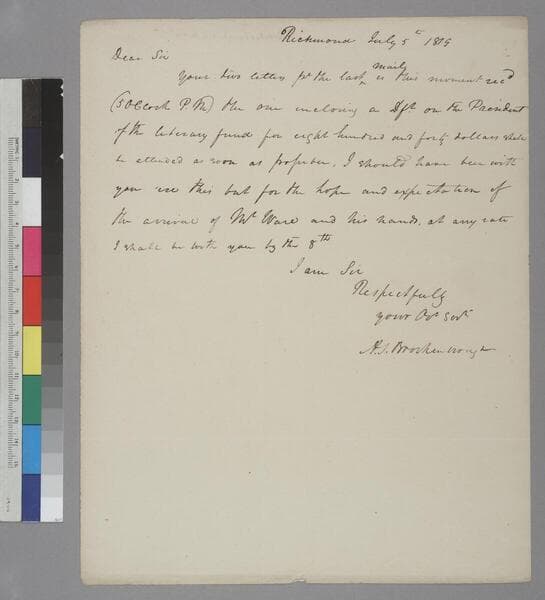 Richmond July 5th 1819
Dear Sir
Your two letters pr the last ^mail^ is this moment recd
(5 OClock P.M) the one inclosing a Dft on the President
of the literary fund for eight hundred and forty dollars shall
be attended as soon as possible. I should have been with
you ere this but for the hope and expectation of
the arrival of Mr Ware and his hands. at any rate
I shall be with you by the 8th
I am Sir
Respectfully
your Obt Servt
A. S. Brockenbrough